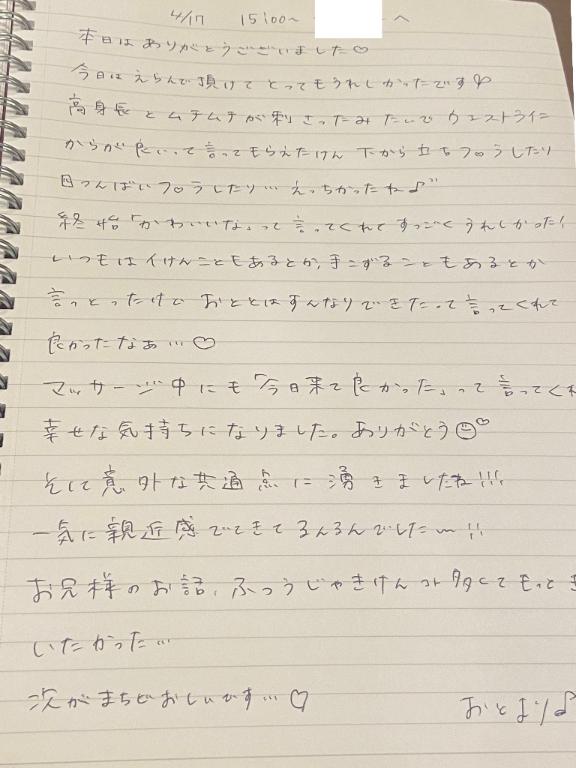 4/17 15:00〜 へ
本日はありがとうございました♡
今日はえらんで頂けてとってもうれしかったです♡
高身長とムチムチが刺さったみたいでウエストライン
からが良いって言ってもらえたけん 下から立ちフロうしたり
四つんばいフロうしたり… えっちかったね♪"
終始「かわいいな」って言ってくれてすっごくうれしかった!
いつもはイけんこともあるとか、手こずることもあるとか
言っとったけど おととはすんなりできたって言ってくれて
良かったなぁ…♡
マッサージ中にも「今日来て良かった」って言ってくれ
幸せな気持ちになりました。ありがとう☺♡
そして意外な共通点に湧きましたね!!!
一気に親近感でてきてるんるんでした〜!!
お兄様のお話、ふつうじゃきけんコト多くてもっとき
いたかった…
次がまちどおしいです…♡
おとより♪